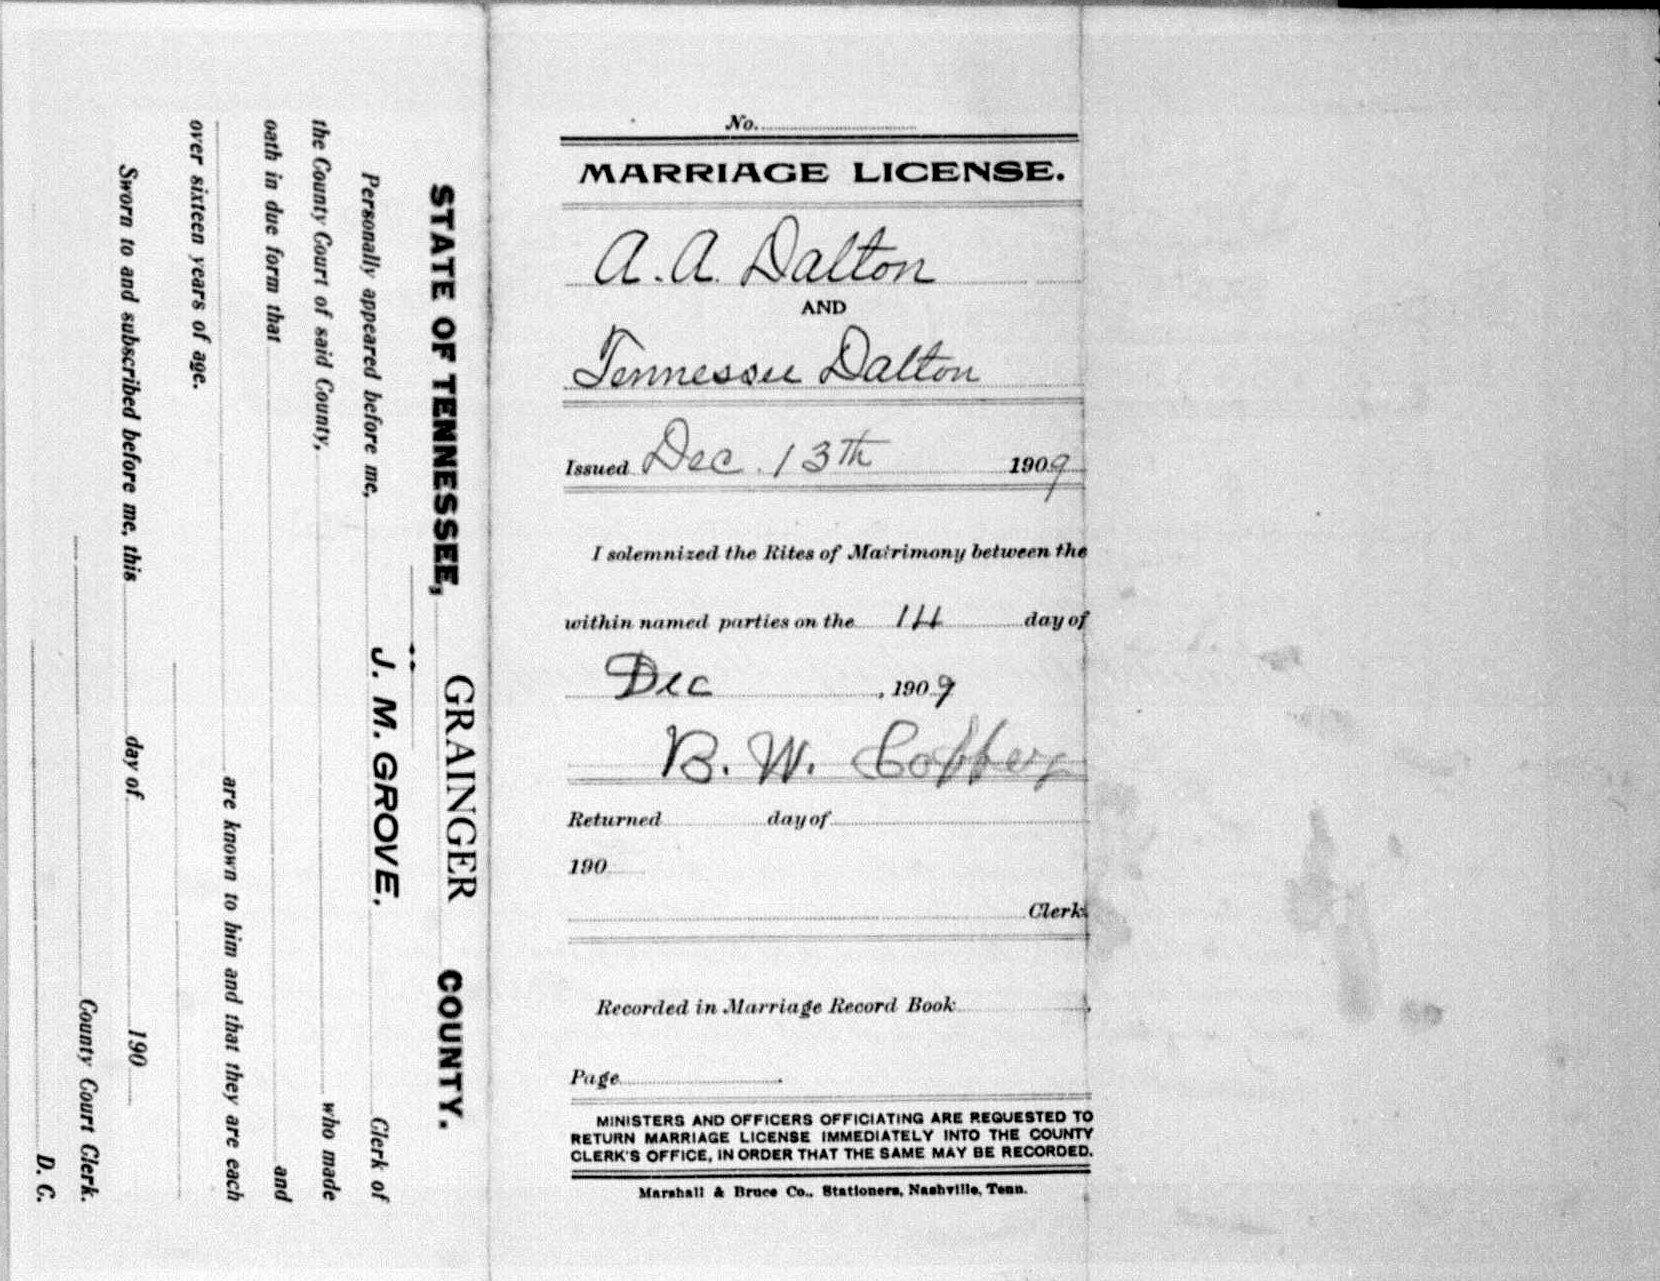 No.
MARRIAGE LICENSE.
A. A. Dalton
AND
Tennessee Dalton
Issued Dec. 13th 1909
I solemnized the Rites of Matrimony between the
within named parties on the 14 day of
Dec , 1909
B. W. Coffey
Returned day of
190
Clerk.
Recorded in Marriage Record Book
Page .
MINISTERS AND OFFICERS OFFICIATING ARE REQUESTED TO
RETURN MARRIAGE LICENSE IMMEDIATELY INTO THE COUNTY
CLERK'S OFFICE, IN ORDER THAT THE SAME MAY BE RECORDED.
Marshall & Bruce Co., Stationers, Nashville, Tenn.
STATE OF TENNESSEE, GRAINGER COUNTY.
Personally appeared before me, J. M. GROVE, Clerk of
the County Court of said County, who made
oath in due form that and
are known to him and that they are each
over sixteen years of age.
Sworn to and subscribed before me, this day of 190
County Court Clerk.
D. C.